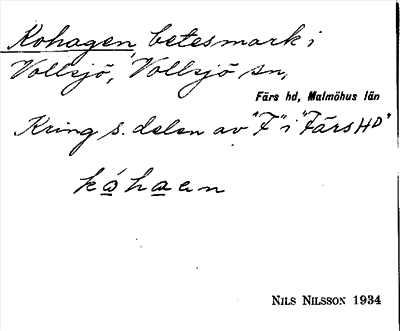 Kohagen, betesmark i
Vollsjö, Vollsjö sn,
Färs hd, Malmöhus län
Kring s. delen av "F" i "Färs HD"
káhaen
NILS NILSSON 1934